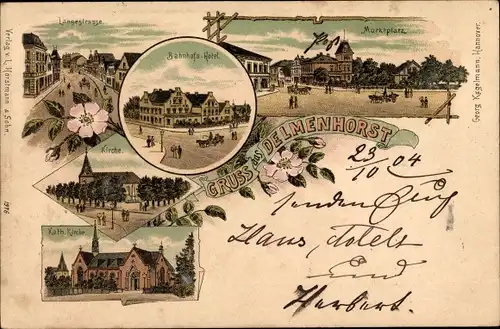 Langestrasse.
Bahnhofs-Hotel.
Marktplatz.
Kirche.
Kath. Kirche
GRUSS aus DELMENHORST
23/10 04
senden Euch
Hans,
und
Herbert.
Verlag v. L. Horstmann & Sohn.
1976
Georg Kugelmann, Hannover.